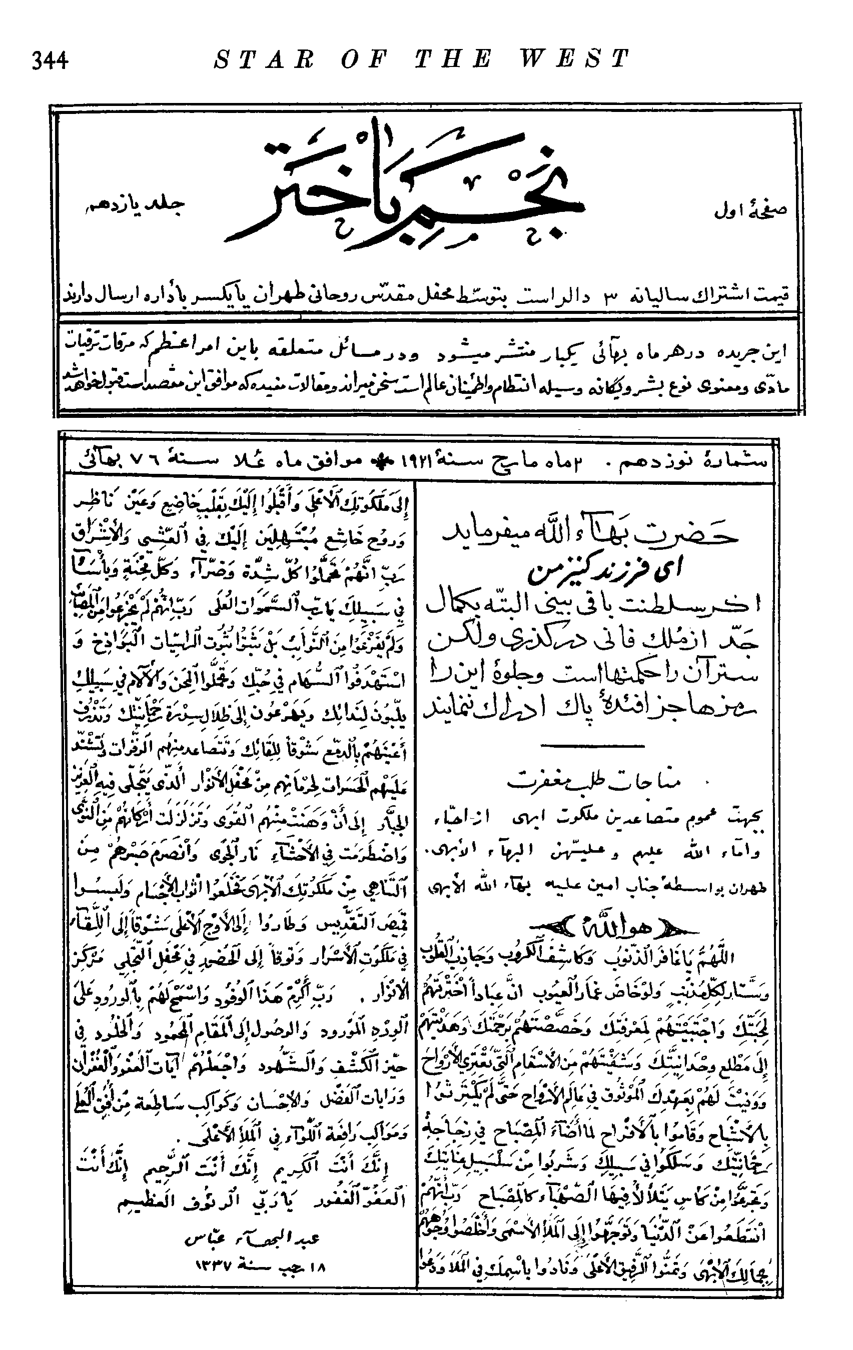 344 STAR OF THE WEST
صفحهٔ اول
نجم باختر
جلد یازدهم
قیمت اشتراك سالیانه ۳ دالر است بتوسّط محفل مقدّس روحانی طهران یا یکسر باداره ارسال دارند
این جریده در هر ماه بهآئی یکبار منتشر میشود و در مسائل متعلقه باین امر اعظم که مرقات ترقیات
مادّی و معنوی نوع بشر و یگانه وسیله انتظام و اطمینان عالم است سخن میراند و مقالات مفیده که موافق این مقصد است قبول خواهد شد
شمارهٔ نوزدهم . ۲ ماه مارچ سنهٔ ۱۹۲۱ * موافق ماه عُلا سنهٔ ۷٦ بهآئی
حَضرت بَهآء اللّه میفرماید
ای فرزند کنیز من
اخر سلطنت باقی بینی البتّه بکمال
جدّ از مُلك فانی درگذری ولکن
ستر آن را حکمتهااست وجلوهٔ این را
رمزها جز افئدهٔ پاك ادراك ننمایند
مناجات طلب مغفرت
بجهت عموم متصاعدین ملکوت ابهی از احبّاء
و امآء الله علیهم و علیهنّ البهآء الأبهی.
طهران بواسطهٔ جناب امین علیه بهآء الله الأبهی
هو اللّه
اللّهُمَّ یَا غافرَ الذّنوُب وَکَاشِفَ الکُروب وَجَاذِبَ القُلوُب
وَسَتّار لِکلِّ مُذنِبٍ وَلَو خَاضَ غِمَارَ العُیوب انَّ عباداً اخْتَرتَهُم
لِمحَبَّتِكَ وَاجْتَبَیْتَهُم لِمَعْرِفَتِكَ وَخَصَّصْتَهُم بِرَحْمَتِكَ وَهَدَیْتَهُم
إِلَی مَطْلَعِ وَحْدانِیَّتِكَ وَشَفَیْتَهُم مِنَ الأَسْقَامِ الَّتِی تَعْتَرِی الأَرْوَاحَ
وَوَفَیْتَ لَهُم بِعَهْدِكَ المَوْثُوقِ فِی عَالَمِ الأَرْوَاحِ حَتّی لَمْ یَکْتَرِثُوا
بِالأَشْبَاحِ وَقَامُوا بِالأَفْرَاحِ لَمّا أَضَآءَ المِصْبَاحُ فِی زجَاجَةِ
رَحْمَانِیَّتِكَ وَسَلَکُوا فِی سَبِیلِكَ وَشَرِبُوا مِنْ سَلْسَبِیلِ عِنَایَتِكَ
مِنْ کَأْسٍ یَتَلَألأ فِیهَا الصَّهْبَآء کَالمِصْبَاحِ رَبِّ إِنَّهُم
انْقَطَعُوا عَنْ الدُّنْیَا وَتَوَجَّهُوا إِلَی المَلَإِ الأَسْمَی وَأَخْلَصُوا وُجُوهَهُم
لِجَمَالِكَ الأَبْهَی وَتَمَنَّوا الرَّفِیقَ الأَعْلَی وَنَادُوا بِاسْمِكَ فِی المَلَإ وَدَعَوا
إِلَی مَلَکُوتِكَ الأَعْلَی وَأَقْبَلُوا إِلَیْكَ بِقَلْبٍ خَاضِعٍ وَعَیْنٍ نَاظِرٍ
وَرُوحٍ خَاشِعٍ مُبْتَهِلِینَ إِلَیْكَ فِی العَشِیِّ وَالإِشْرَاقِ
رَبِّ اِنَّهُمْ تَحَمَّلُوا کُلَّ شِدَّةٍ وَضَرّآءَ وَکُلَّ مِحْنَةٍ وَبَأْسَآء
فِی سَبِیلِكَ یَا رَبَّ السَّمَوَاتِ العُلَی رَبِّ إِنَّهُم لَمْ یَجْزَعُوا مِنَ المَصَائِبِ
وَلَمْ یَفْزَعُوا مِنَ النَّوَائِبِ بَلْ ثَبَتُوا ثُبُوتَ الرّاسِیَاتِ البَوَاذِخِ وَ
اسْتَهْدَفُوا السِّهَامَ فِی حُبِّكَ وَتَحَمَّلُوا المِحَنَ وَالآلامَ فِی سَبِیلِكَ
یُلَبُّونَ لِنِدَائِكَ وَیَهْرَعُونَ إِلَی ظِلالِ سِدْرَةِ رَحْمَانِیَّتِكَ وَتَذْرِفُ
أَعْیُنُهُمْ بِالدَّمْعِ شَوْقاً لِلِقَائِكَ وَتَتَصَاعَدُ مِنْهُمِ الزَّفَرَاتُ وَتَشْتَدُّ
عَلَیْهِم الحَسَرَاتُ لِحِرْمَانِهِم مِنْ مَحْفَلِ الأَنْوَارِ الَّذِی یَتَجَلّی فِیهِ العَزِیزُ
الجَبّارُ إِلَی أَنْ وَهَنَتْ مِنْهُم القُوَی وَتَزَلْزَلَت أَرْکَانُهُمْ مِنَ النَّوَی
وَاضْطَرَمَت فِی الأَحْشَآءِ نَارُ الجَوَی وَانْصَرَمَ صَبْرُهُمْ مِنَ
التَّنَاهِی مِنْ مَلَکُوتِكَ الأَبْهَی فَخَلَعُوا أَثْوَابَ الأَجْسَامِ وَلَبِسُوا
قَمِیصَ التَّقْدِیسِ وَطَارُوا إِلَی الأَوْجِ الأَعْلَی شَوْقاً إِلَی اللِّقَآءِ
فِی مَلَکُوتِ الأَسْرَارِ وَتَوْقاً إِلَی الحُضُورِ فِی مَحْفَلِ التَّجَلِّی مَرْکَزِ
الأَنْوَارِ . رَبِّ أَکْرِمْ هَذَا الوُفُودَ وَاسْمَحْ لَهُمْ بِالوُرُودِ عَلَی
الوِرْدِ المَوْرُودِ وَالوصُولِ إِلَی المَقَامِ المَحْمُودِ وَالخُلُودِ فِی
حَیِّزِ الکَشْفِ وَالشُّهُودِ وَاجْعَلْهُمْ آیَاتِ العَفْوِ وَالغُفْرَانِ
وَرَایَاتِ الفَضْلِ وَالإِحْسَانِ وَکَوَاکِبَ سَاطِعَة مِنْ أُفُقِ العُلَی
وَمَوَاکِبَ رَافِعَة اللِّوَآءِ فِی المَلَإِ الأَعْلَی .
إِنَّكَ أَنْتَ الکَرِیم إِنَّكَ أَنْتَ الرَّحِیم إِنَّكَ أَنْتَ
العَفُوُّ الغَفُور یَا رَبِّی الرئوف العظیم
عبد البهآء عبّاس
۱۸ رجب سنة ۱۳۳۷